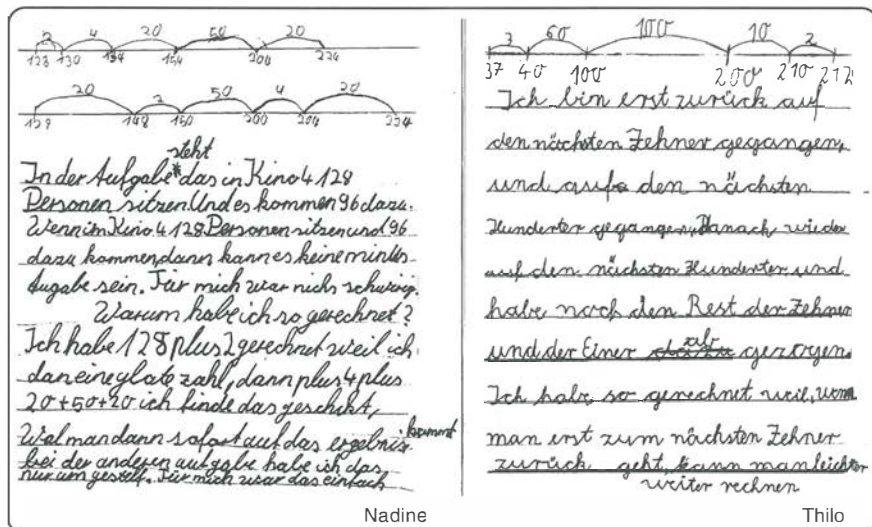 2 4 20 50 20
128 130 134 154 204 224
20 2 50 4 20
128 148 150 200 204 224
steht
In der Aufgabe * das in Kino 4 128
Personen sitzen. Und es kommen 96 dazu.
Wenn im Kino 4 128 Personen sitzen und 96
dazu kommen, dann kann es keine minus
Augabe sein. Für mich war nichs schwirig.
Warum habe ich so gerechnet?
Ich habe 128 plus 2 gerechnet weil ich
dan eine glate zahl, dann plus 4 plus
20+50+20 ich finde das geschikt,
Weil man dann sofort auf das ergebnis kommt
bei der anderen aufgabe habe ich das
nur um gestellt. Für mich war das einfach
Nadine
3 60 100 10 2
37 40 100 200 210 212
Ich bin erst zurück auf
den nächsten Zehner gegangen,
und aufs den nächsten
Hunderter gegangen, Danach wieder
auf den nächsten Hunderter und
habe noch den Rest der Zehner
und der Einer dazu abr gezogen.
Ich habe so gerechnet weil, wenn
man erst zum nächsten Zehner
zurück geht, kann man leichter
weiter rechnen
Thilo